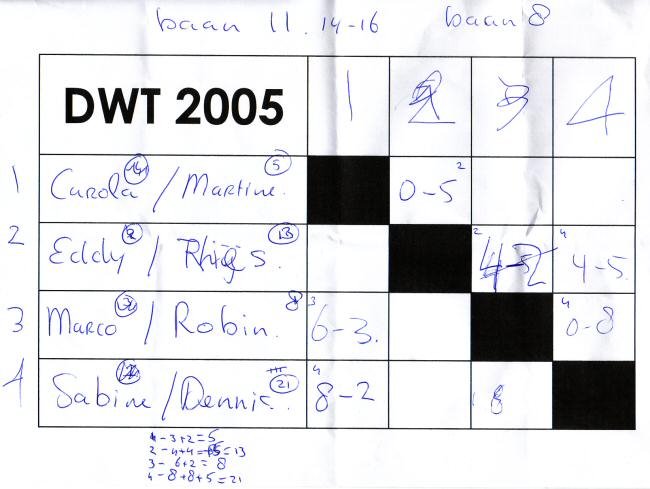 baan 11. 14-16 baan 8
DWT 2005 1 2 3 4
1 Carola / Martine. 5 0-5 2
2 Eddy / 13 2 4 4-5
3 Marco / Robin. 8 3 6-3. 4 0-8
4 Sabine / Dennis. 21 4 8-2 8
1 - 3+2=5
2 - 4+4= =13
3 - 6+2= 8
4 - 8+8+5=21